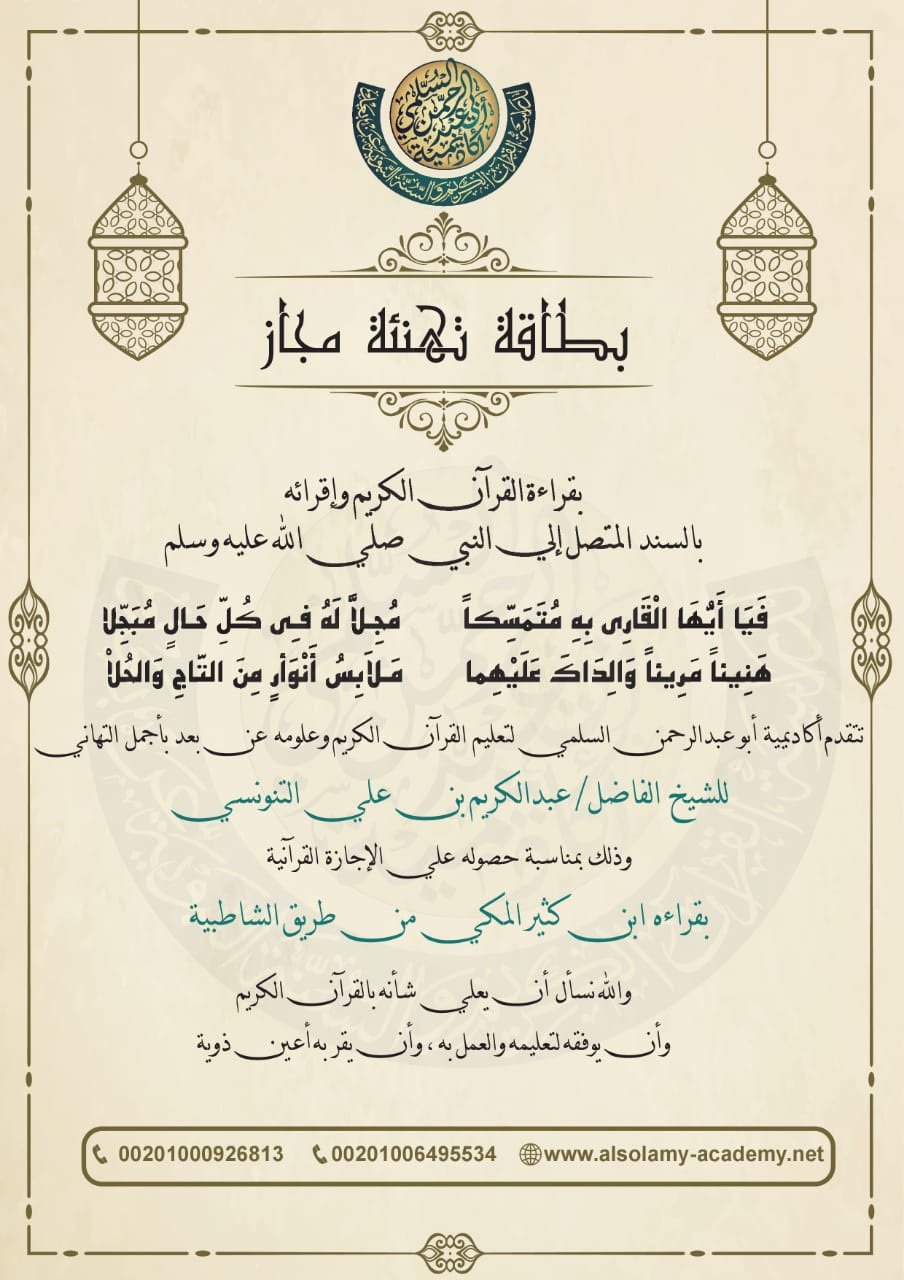 أكاديمية أبي عبد الرحمن السلمي
بطاقة تهنئة مجاز
بقراءة القرآن الكريم وإقرائه
بالسند المتصل إلي النبي صلي الله عليه وسلم
فَيَا أَيُّهَا الْقَارِى بِهِ مُتَمَسِّكاً مُجِلاًّ لَهُ فِى كُلِّ حَالٍ مُبَجِّلا
هَنِيئاً مَرِيئاً وَالِدَاكَ عَلَيْهِما مَلاَبِسُ أَنْوَأرٍ مِنَ التّاجِ وَالحُلاْ
تتقدم أكاديمية أبو عبدالرحمن السلمي لتعليم القرآن الكريم وعلومه عن بعد بأجمل التهاني
للشيخ الفاضل/ عبدالكريم بن علي التنونسي
وذلك بمناسبة حصوله علي الإجازة القرآنية
بقراءه ابن كثير المكي من طريق الشاطبية
والله نسأل أن يعلي شأنه بالقرآن الكريم
وأن يوفقه لتعليمه والعمل به ، وأن يقر به أعين ذوية
00201000926813 00201006495534 www.alsolamy-academy.net